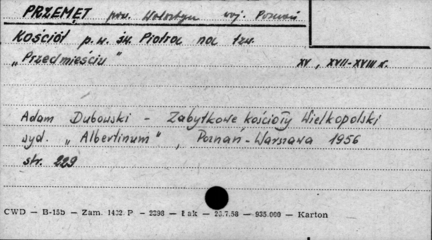 PRZEMĘT pow. Wolsztyn woj. Poznań
Kościół p.w. św. Piotra na tzw.
„Przedmieściu” XV, XVII-XVIII w.
Adam Dubowski - Zabytkowe kościoły Wielkopolski
wyd. „Albertinum”, Poznań-Warszawa 1956
str. 229
CWD — B-15b — Zam. 1422. P — 2298 — Łak — 23.7.58 — 935.000 — Karton